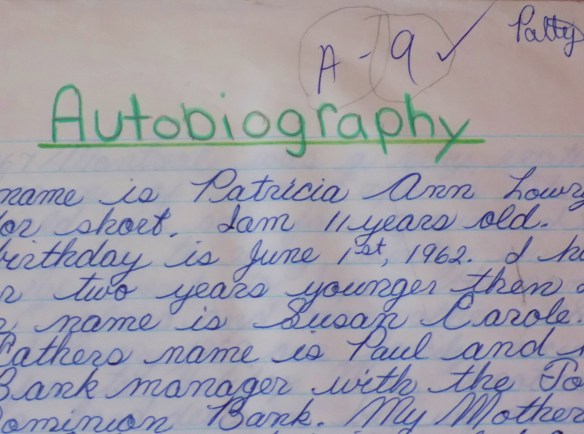 Patty
A - 9 ✓
Autobiography
name is Patricia Ann Lowry
for short. I am 11 years old.
birthday is June 1st, 1962. I ha
two years younger then
name is Susan Carole.
Fathers name is Paul and
Bank manager with the To
ominion Bank. My Mother